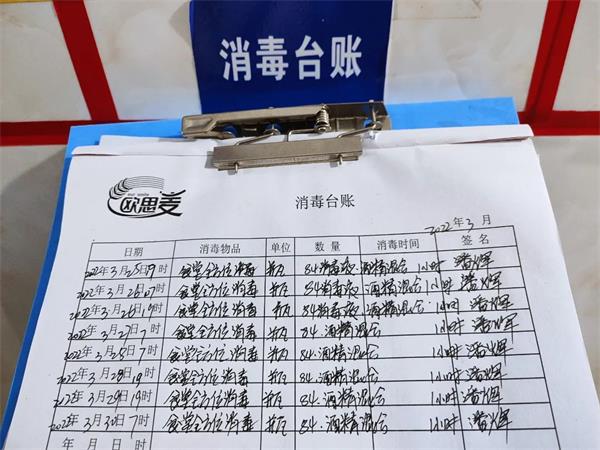 消毒台账
欧思麦
消毒台账
2022年3月
日期 消毒物品 单位 数量 消毒时间 签名
2022年3月25日19时 食堂全方位消毒 瓶 84消毒液 酒精混合 1小时 潘辉
2022年3月26日7时 食堂全方位消毒 瓶 84消毒液 酒精混合 1小时 潘辉
2022年3月26日19时 食堂全方位消毒 瓶 84消毒液 酒精混合 1小时 潘辉
2022年3月27日7时 食堂全方位消毒 瓶 84.酒精混合 1小时 潘辉
2022年3月 日7时 食堂全方位消毒 瓶 84.酒精混合 1小时 潘辉
2022年3月28日19时 食堂全方位消毒 瓶 84.酒精混合 1小时 潘辉
2022年3月29日19时 食堂全方位消毒 瓶 84.酒精混合 1小时 潘辉
2022年3月30日7时 食堂全方位消毒 瓶 84.酒精混合 1小时 潘辉
年 月 日 时